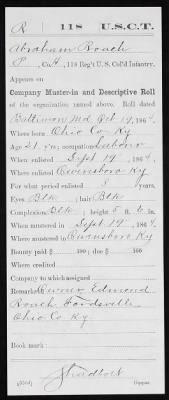 R 118 U.S.C.T.
Abraham Roach
P , Co. H, 118 Reg't U. S. Col'd Infantry.
Appears on
Company Muster-in and Descriptive Roll
of the organization named above. Roll dated
Baltimore Md Oct 19, 1864.
Where born Ohio Co Ky
Age 21 y'rs; occupation Laborer
When enlisted Sept 19, 1864.
Where enlisted Owensboro Ky
For what period enlisted 3 years.
Eyes Blk ; hair Blk
Complexion Blk ; height 5 ft. 6 in.
When mustered in Sept 19, 1864
Where mustered in Owensboro Ky
Bounty paid $ 100; due $ 100
Where credited
Company to which assigned
Remarks: Owner Edmond
Roach Fordsville
Ohio Co Ky.
Book mark:
Copyist.